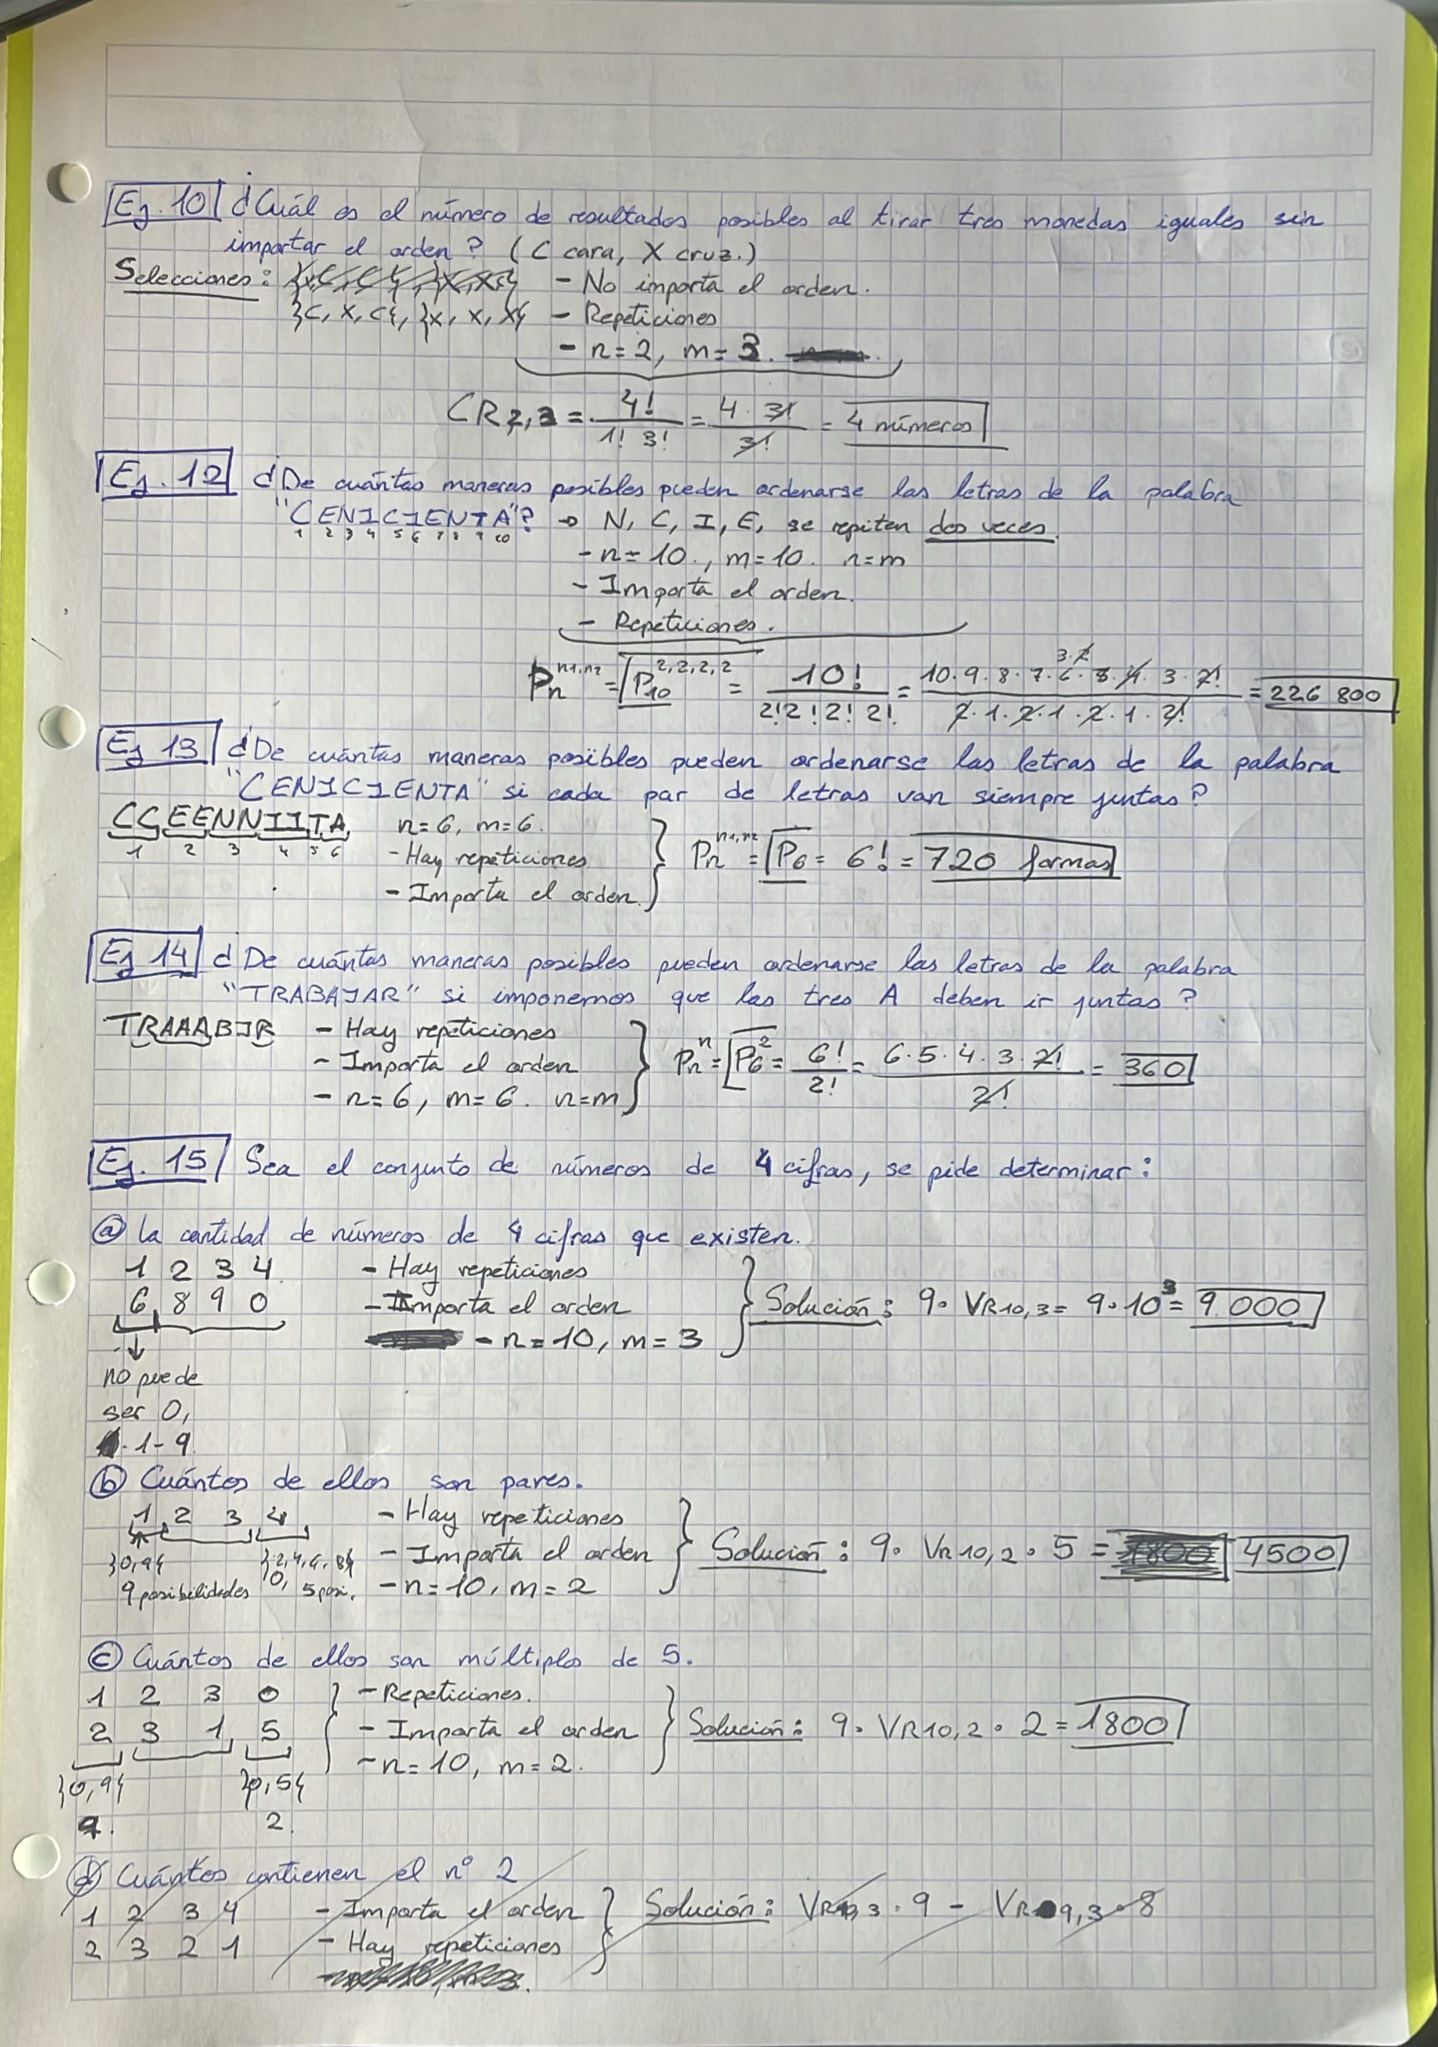 Ej. 10 ¿Cuál es el número de resultados posibles al tirar tres monedas iguales sin
importar el orden? (C cara, X cruz.)
Selecciones: - No importa el orden.
}C, X, C{, }X, X, X{ - Repeticiones
- n=2, m=3.
CR2,3 = 4!/1! 3! = 4·3!/3! = 4 números
Ej. 12 ¿De cuántas maneras posibles pueden ordenarse las letras de la palabra
"CENICIENTA"? → N, C, I, E, se repiten dos veces.
1 2 3 4 5 6 7 8 9 10
- n=10., m=10. n=m
- Importa el orden.
- Repeticiones.
Pn^n1,n2 = P10^2,2,2,2 = 10!/2!2!2!2! = 10·9·8·7·6·5·4·3·2!/2·1·2·1·2·1·2! = 226 800
3·2
Ej 13 ¿De cuántas maneras posibles pueden ordenarse las letras de la palabra
"CENICIENTA" si cada par de letras van siempre juntas?
CCEENNIITA n=6, m=6.
1 2 3 4 5 6 - Hay repeticiones } Pn^n1,n2 = P6 = 6! = 720 formas
- Importa el orden.
Ej 14 ¿De cuántas maneras posibles pueden ordenarse las letras de la palabra
"TRABAJAR" si imponemos que las tres A deben ir juntas?
TRAAABJR - Hay repeticiones
- Importa el orden } Pn^n = P6^2 = 6!/2! = 6·5·4·3·2!/2! = 360
- n=6, m=6. n=m
Ej. 15 Sea el conjunto de números de 4 cifras, se pide determinar:
a) La cantidad de números de 4 cifras que existen.
1 2 3 4 - Hay repeticiones
6 8 9 0 - Importa el orden } Solución: 9· VR10,3 = 9·10^3 = 9.000
- n=10, m=3
no puede
ser 0,
1-9.
b) Cuántos de ellos son pares.
1 2 3 4 - Hay repeticiones
}0,9{ }2,4,6,8{ - Importa el orden } Solución: 9· VR10,2 · 5 = 1800 4500
9 posibilidades 0, 5 posi. - n=10, m=2
c) Cuántos de ellos son múltiplos de 5.
1 2 3 0 - Repeticiones.
2 3 1 5 - Importa el orden } Solución: 9· VR10,2 · 2 = 1800
- n=10, m=2.
}0,9{ }0,5{
9. 2.
d) Cuántos contienen el nº 2
1 2 3 4 - Importa el orden } Solución: VR10,3 · 9 - VR9,3 · 8
2 3 2 1 - Hay repeticiones